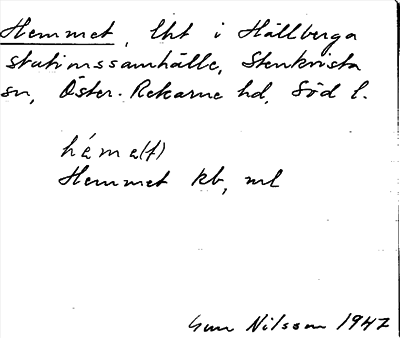 Hemmet, lht i Hällberga
stationssamhälle, Stenkvista
sn, Öster-Rekarne hd, Söd l.
héme(t)
Hemmet kb, ml
Gun Nilsson 1947